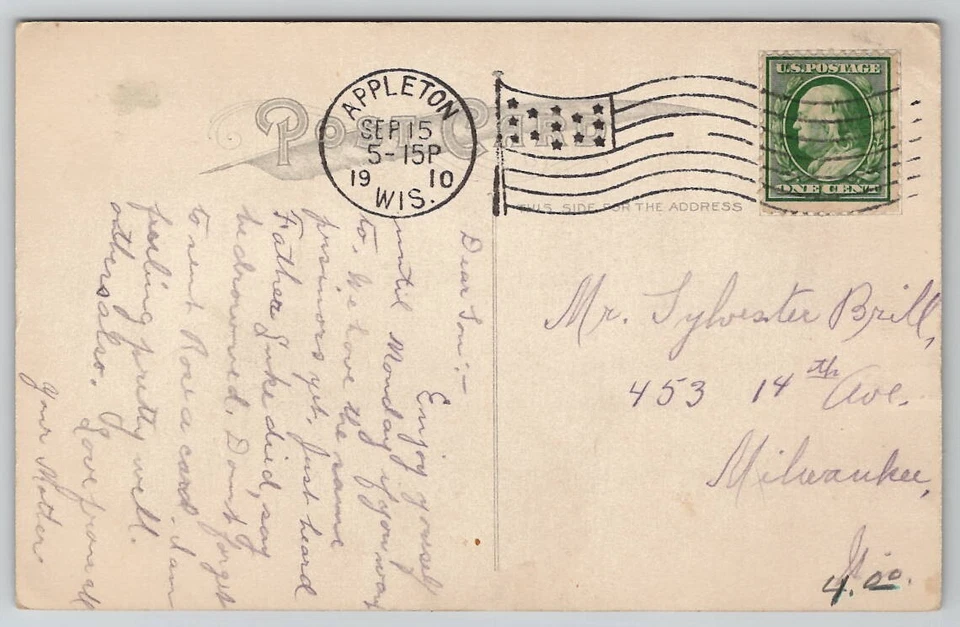 POST CARD
APPLETON
SEP 15
5-15P
1910
WIS.
U.S. POSTAGE
ONE CENT
THIS SIDE FOR THE ADDRESS
Dear Son:-
Enjoy yourself
until Monday if you way
to. We have the same
prisinors yet. Just heard
Father Luke died, say
he drowned. Don't forget
to sent Rose a card. I am
feeling pretty well.
others also. Love from all
your Mother
Mr. Sylvester Brill,
453 14th Ave.
Milwaukee,
Wis.
4.00.